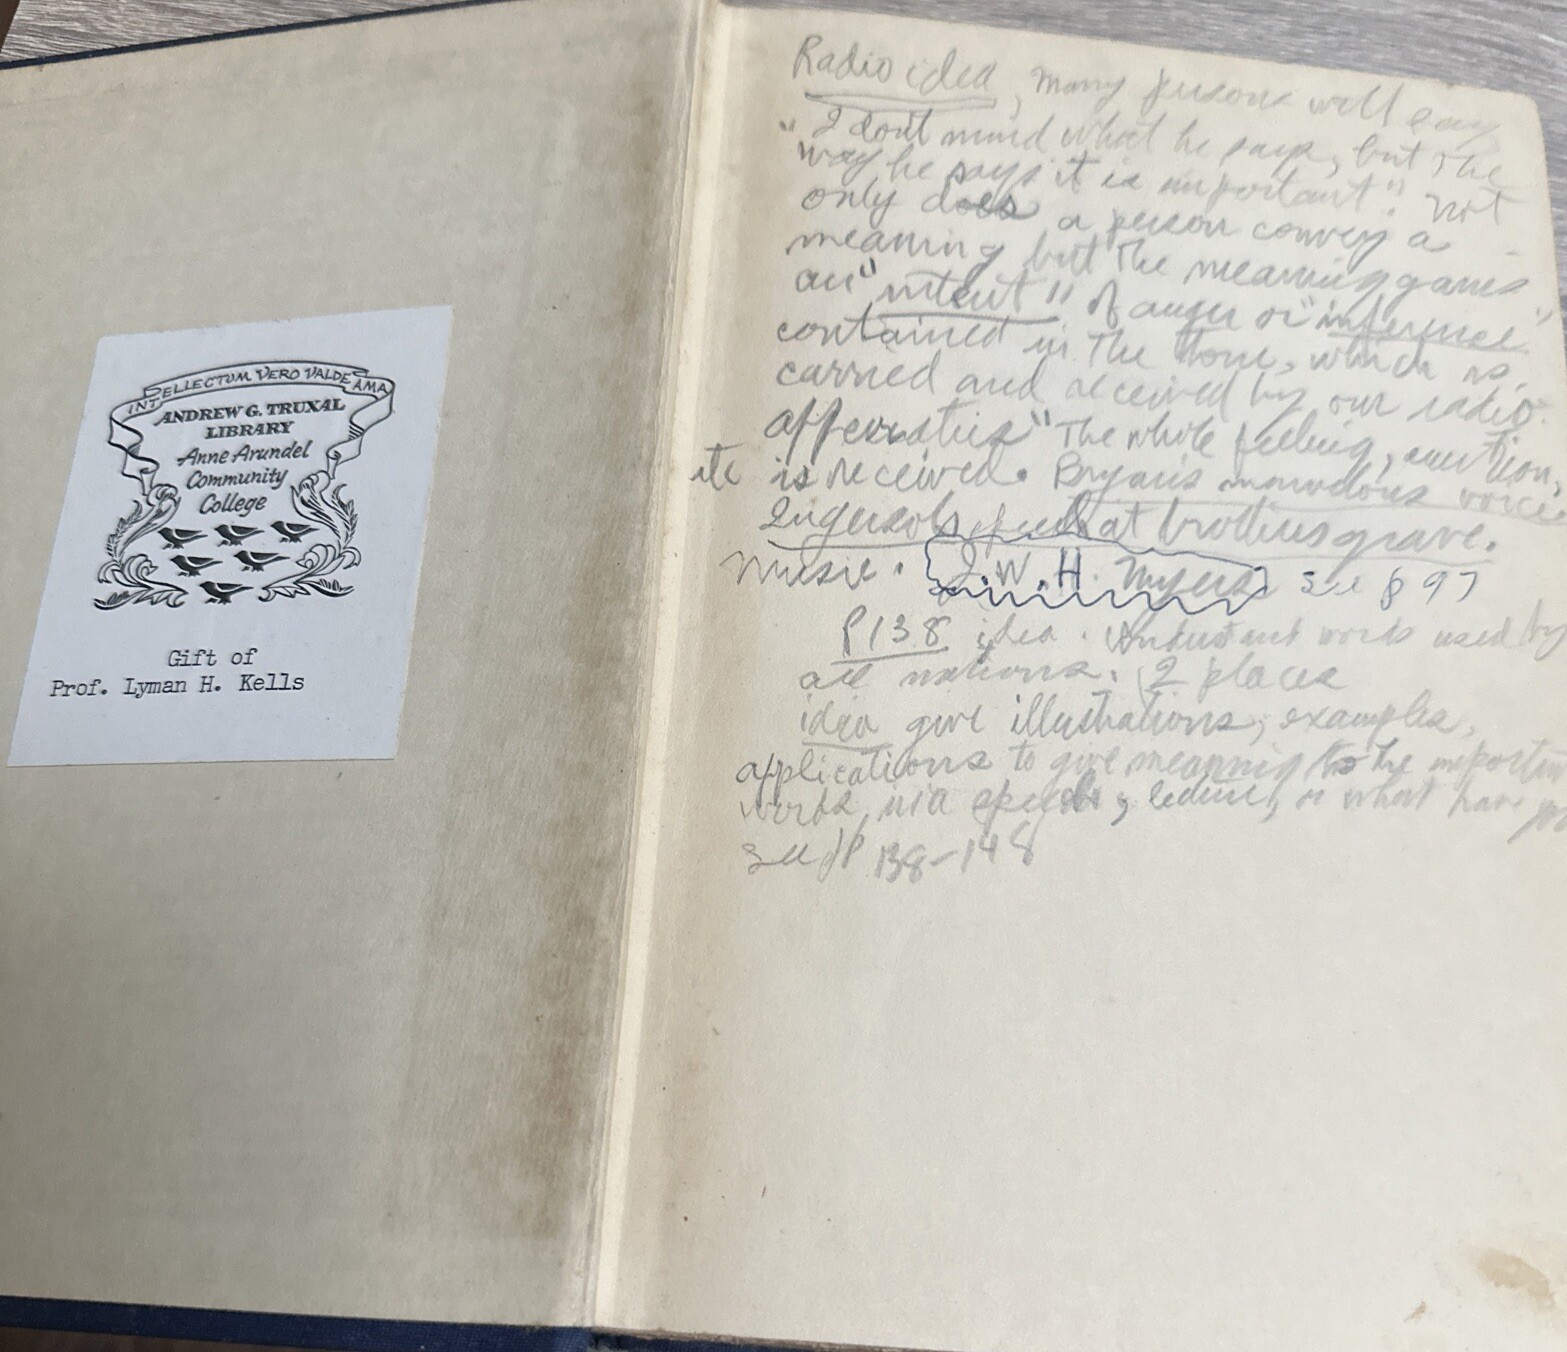 INTELLECTUM VERO VALDE AMA
ANDREW G. TRUXAL
LIBRARY
Anne Arundel
Community
College
Gift of
Prof. Lyman H. Kells
Radio idea, Many persons will say
"I dont mind what he says, but the
way he says it is important". Not
only does a person convey a
meaning but the meaning gains
an "intent" of anger or "inference"
contained in the tone, which is
carried and received by our radio
"The whole feeling, emotion,
etc is received. Bryan's marvelous voice
Ingersol's at brothers grave.
Music. J. W. H. Myers see p 97
P138 idea. words used by
all nations. 2 places
idea give illustrations, examples,
applications to give meaning to the
words, in a speech, lecture, or what have you
See p 138-148